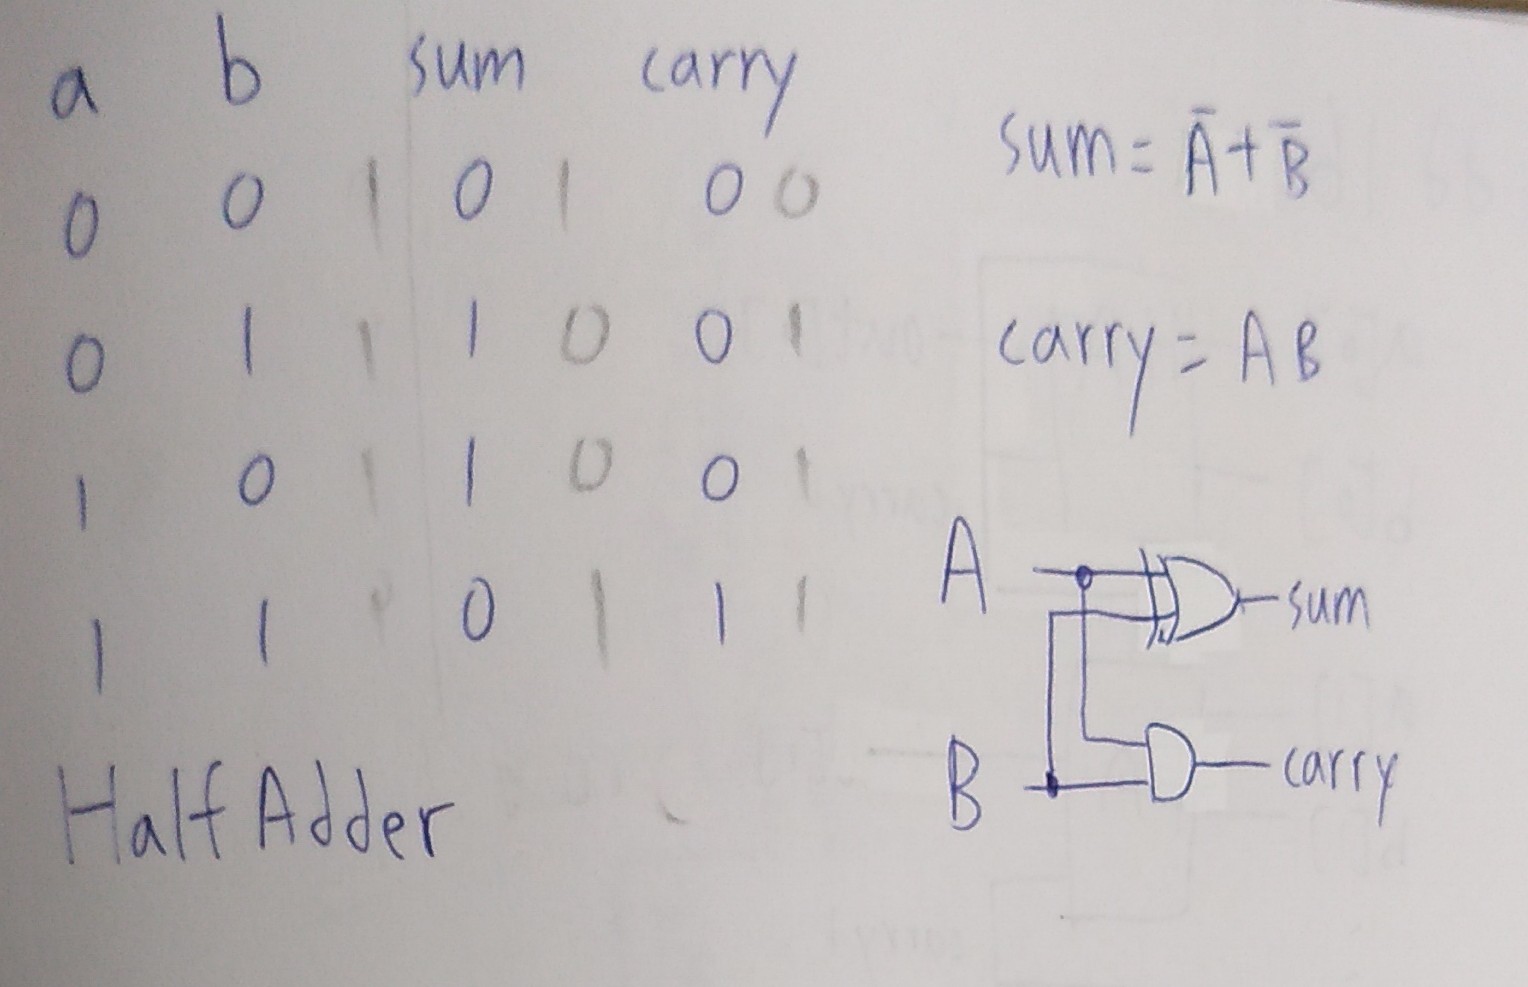 a b sum carry
0 0 1 0 1 0 0
0 1 1 1 0 0 1
1 0 1 1 0 0 1
1 1 0 1 1 1
Half Adder
sum = A̅ + B̅
carry = A B
A
sum
B
carry